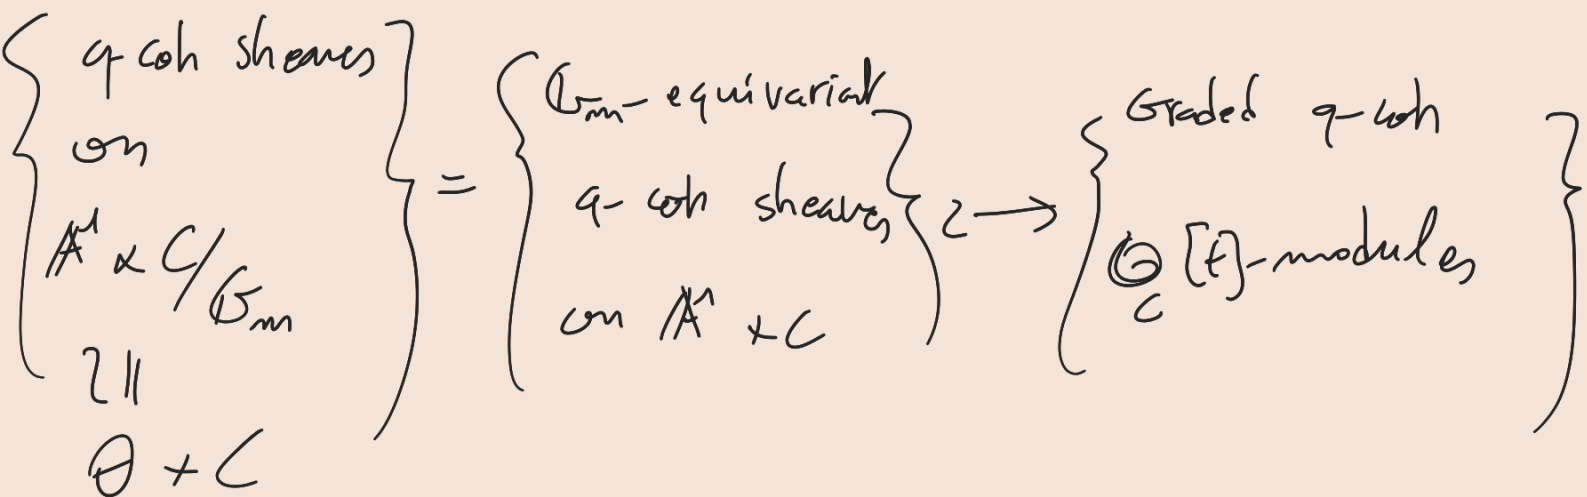 { q-coh sheaves on A¹ × C/G_m ≀|| Θ × C } = { G_m-equivariant q-coh sheaves on A¹ × C } ⟷ { Graded q-coh O_C[t]-modules }